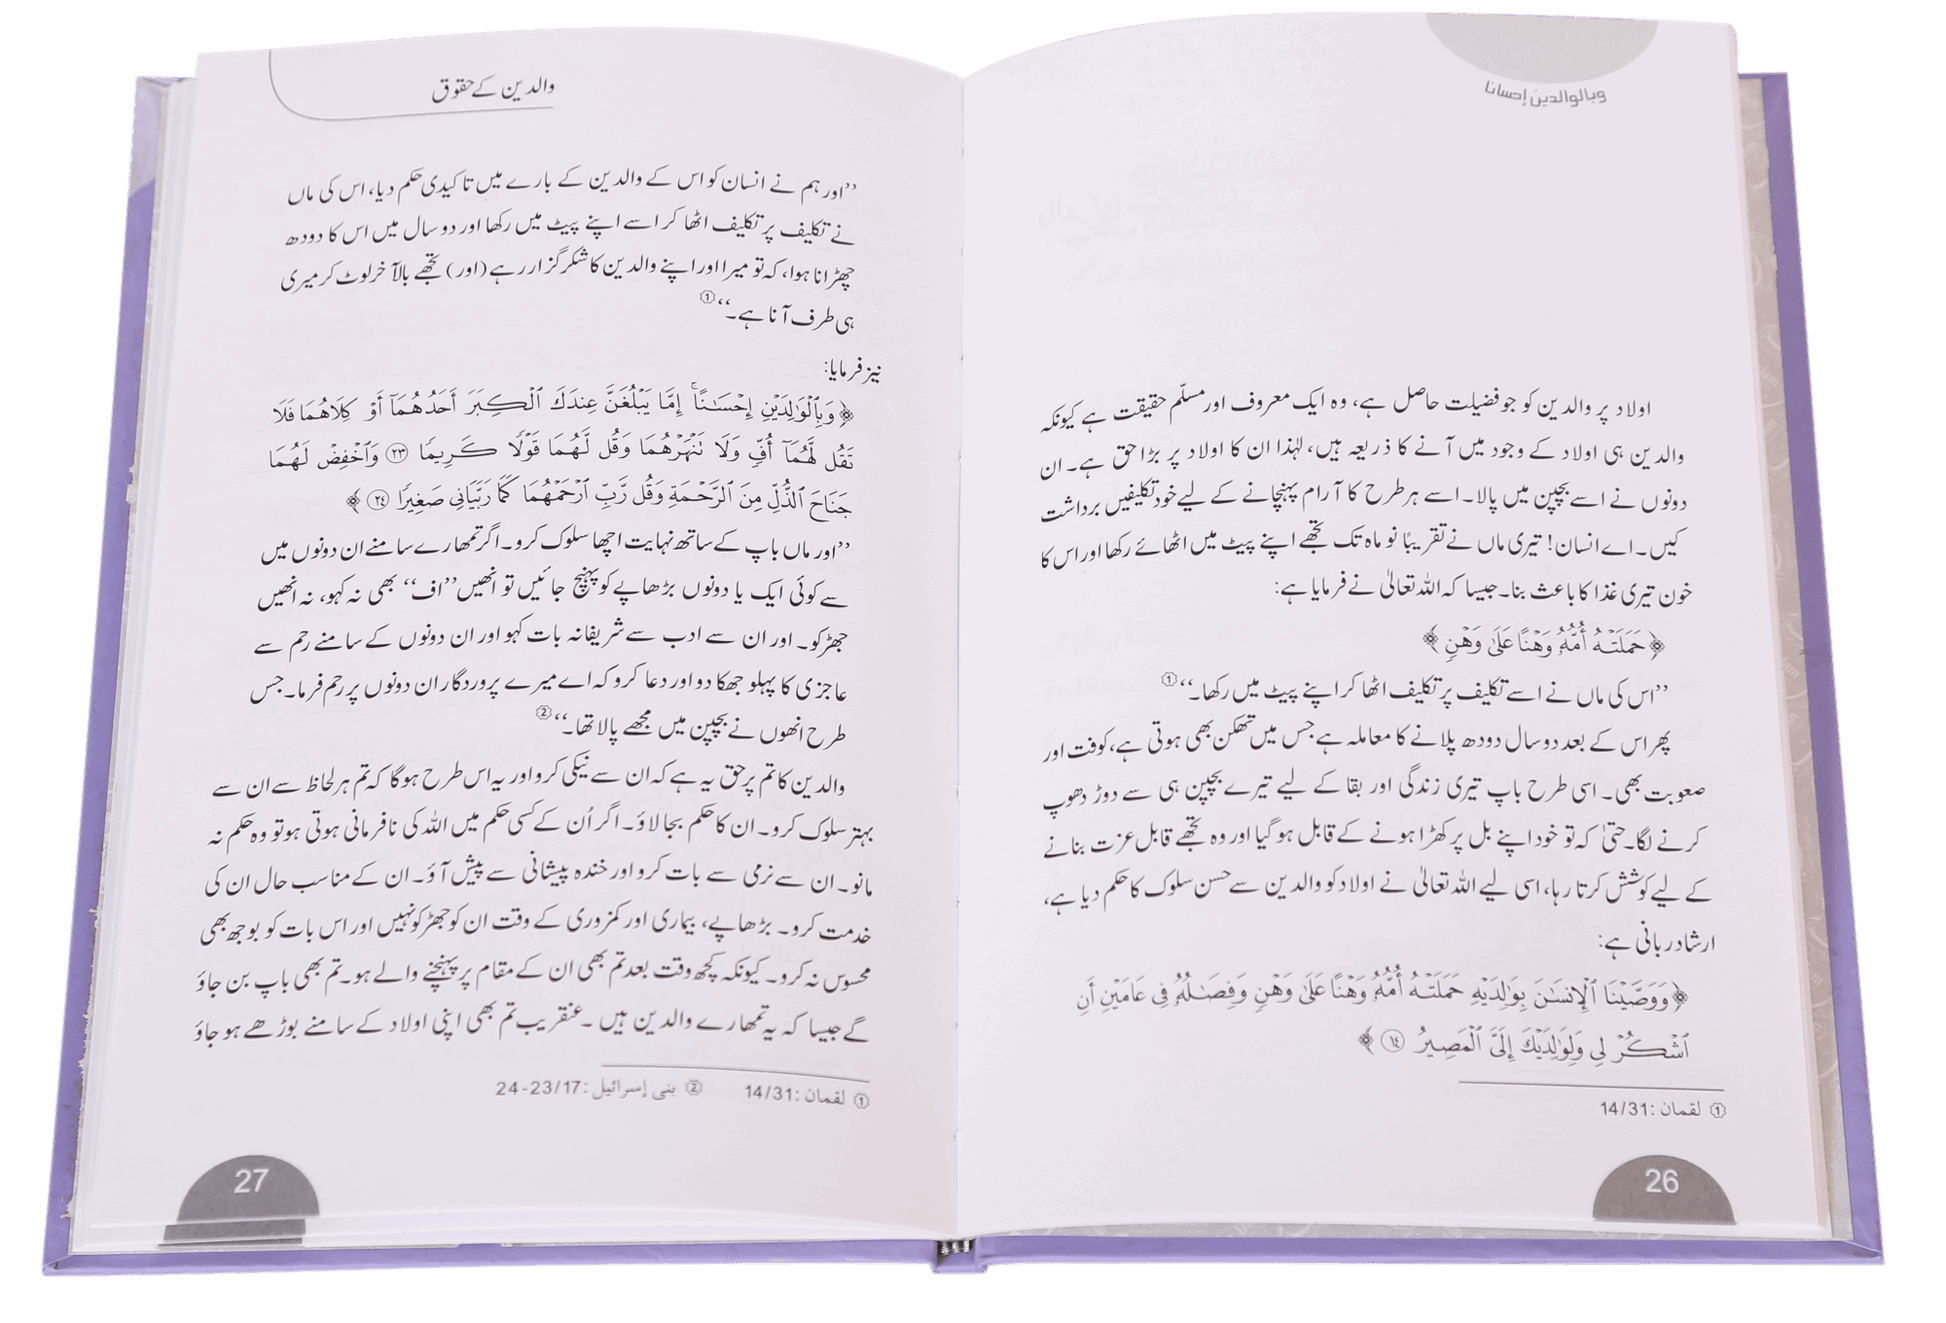 وبالوالدين إحسانا
اولاد پر والدین کو جو فضیلت حاصل ہے، وہ ایک معروف اور مسلّم حقیقت ہے کیونکہ
والدین ہی اولاد کے وجود میں آنے کا ذریعہ ہیں، لہٰذا ان کا اولاد پر بڑا حق ہے۔ ان
دونوں نے اسے بچپن میں پالا۔ اسے ہر طرح کا آرام پہنچانے کے لیے خود تکلیفیں برداشت
کیں۔ اے انسان! تیری ماں نے تقریبًا نو ماہ تک تجھے اپنے پیٹ میں اٹھائے رکھا اور اس کا
خون تیری غذا کا باعث بنا۔ جیسا کہ اللہ تعالیٰ نے فرمایا ہے:
﴿حَمَلَتْهُ أُمُّهُۥ وَهْنًا عَلَىٰ وَهْنٍ﴾
’’اس کی ماں نے اسے تکلیف پر تکلیف اٹھا کر اپنے پیٹ میں رکھا۔‘‘①
پھر اس کے بعد دو سال دودھ پلانے کا معاملہ ہے جس میں تھکن بھی ہوتی ہے، کوفت اور
صعوبت بھی۔ اسی طرح باپ تیری زندگی اور بقا کے لیے تیرے بچپن ہی سے دوڑ دھوپ
کرنے لگا۔ حتیٰ کہ تو خود اپنے بل پر کھڑا ہونے کے قابل ہو گیا اور وہ تجھے قابل عزت بنانے
کے لیے کوشش کرتا رہا، اسی لیے اللہ تعالیٰ نے اولاد کو والدین سے حسن سلوک کا حکم دیا ہے،
ارشاد ربانی ہے:
﴿وَوَصَّيْنَا ٱلْإِنسَـٰنَ بِوَٰلِدَيْهِ حَمَلَتْهُ أُمُّهُۥ وَهْنًا عَلَىٰ وَهْنٍ وَفِصَـٰلُهُۥ فِى عَامَيْنِ أَنِ
ٱشْكُرْ لِى وَلِوَٰلِدَيْكَ إِلَىَّ ٱلْمَصِيرُ ⑭﴾
① لقمان :14/31
26
والدین کے حقوق
’’اور ہم نے انسان کو اس کے والدین کے بارے میں تاکیدی حکم دیا، اس کی ماں
نے تکلیف پر تکلیف اٹھا کر اسے اپنے پیٹ میں رکھا اور دو سال میں اس کا دودھ
چھڑانا ہوا، کہ تو میرا اور اپنے والدین کا شکر گزار رہے (اور) تجھے بالآخر لوٹ کر میری
ہی طرف آنا ہے۔‘‘①
نیز فرمایا:
﴿وَبِٱلْوَٰلِدَيْنِ إِحْسَـٰنًا ۚ إِمَّا يَبْلُغَنَّ عِندَكَ ٱلْكِبَرَ أَحَدُهُمَآ أَوْ كِلَاهُمَا فَلَا
تَقُل لَّهُمَآ أُفٍّ وَلَا تَنْهَرْهُمَا وَقُل لَّهُمَا قَوْلًا كَرِيمًا ٢٣ وَٱخْفِضْ لَهُمَا
جَنَاحَ ٱلذُّلِّ مِنَ ٱلرَّحْمَةِ وَقُل رَّبِّ ٱرْحَمْهُمَا كَمَا رَبَّيَانِى صَغِيرًا ٢٤﴾
’’اور ماں باپ کے ساتھ نہایت اچھا سلوک کرو۔ اگر تمھارے سامنے ان دونوں میں
سے کوئی ایک یا دونوں بڑھاپے کو پہنچ جائیں تو انھیں ’’اف‘‘ بھی نہ کہو، نہ انھیں
جھڑکو۔ اور ان سے ادب سے شریفانہ بات کہو اور ان دونوں کے سامنے رحم سے
عاجزی کا پہلو جھکا دو اور دعا کرو کہ اے میرے پروردگار ان دونوں پر رحم فرما۔ جس
طرح انھوں نے بچپن میں مجھے پالا تھا۔‘‘②
والدین کا تم پر حق یہ ہے کہ ان سے نیکی کرو اور یہ اس طرح ہوگا کہ تم ہر لحاظ سے ان سے
بہتر سلوک کرو۔ ان کا حکم بجا لاؤ۔ اگر اُن کے کسی حکم میں اللہ کی نافرمانی ہوتی ہو تو وہ حکم نہ
مانو۔ ان سے نرمی سے بات کرو اور خندہ پیشانی سے پیش آؤ۔ ان کے مناسب حال ان کی
خدمت کرو۔ بڑھاپے، بیماری اور کمزوری کے وقت ان کو جھڑکو نہیں اور اس بات کو بوجھ بھی
محسوس نہ کرو۔ کیونکہ کچھ وقت بعد تم بھی ان کے مقام پر پہنچنے والے ہو۔ تم بھی باپ بن جاؤ
گے جیسا کہ یہ تمھارے والدین ہیں۔ عنقریب تم بھی اپنی اولاد کے سامنے بوڑھے ہو جاؤ
① لقمان :14/31 ② بنی إسرائیل :17/23-24
27